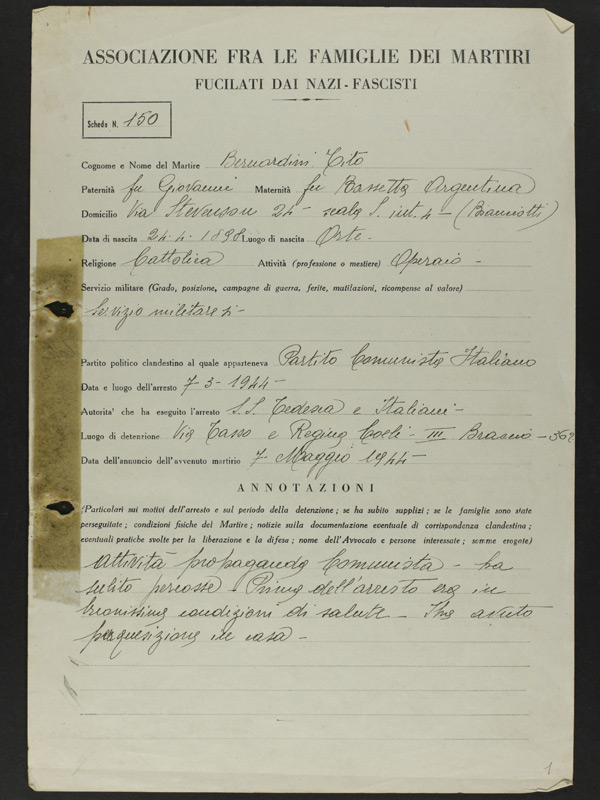 ASSOCIAZIONE FRA LE FAMIGLIE DEI MARTIRI
FUCILATI DAI NAZI-FASCISTI
Scheda N. 150
Cognome e Nome del Martire Bernardini Tito
Paternità fu Giovanni Maternità fu Bassetta Argentina
Domicilio Via Stevenson 24 - scala S. int. 4 -
Data di nascita 24.4.1898 Luogo di nascita Orte -
Religione Cattolica Attività (professione o mestiere) Operaio -
Servizio militare (Grado, posizione, campagne di guerra, ferite, mutilazioni, ricompense al valore)
Servizio militare si -
Partito politico clandestino al quale apparteneva Partito Comunista Italiano
Data e luogo dell'arresto 7-3-1944 -
Autorita' che ha eseguito l'arresto S.S. Tedesca e Italiani -
Luogo di detenzione Via Tasso e Regina Coeli - III Braccio -
Data dell'annuncio dell'avvenuto martirio 7 Maggio 1944 -
ANNOTAZIONI
(Particolari sui motivi dell'arresto e sul periodo della detenzione; se ha subito supplizi; se le famiglie sono state
perseguitate; condizioni fisiche del Martire; notizie sulla documentazione eventuale di corrispondenza clandestina;
eventuali pratiche svolte per la liberazione e la difesa; nome dell'Avvocato e persone interessate; somme erogate)
Attività propaganda Comunista - ha
subito percosse. Prima dell'arresto era in
buonissime condizioni di salute - Ha avuto
perquisizione in casa -
1